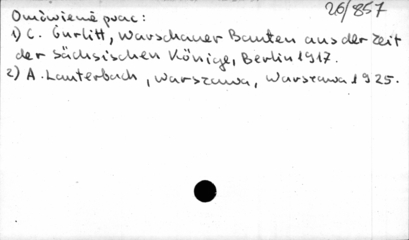 26/857
Omówienie prac:
1) C. Gurlitt, Warschauer Bauten aus der Zeit
der Sächsischen Könige, Berlin 1917.
2) A. Lauterbach, Warszawa, Warszawa 1925.